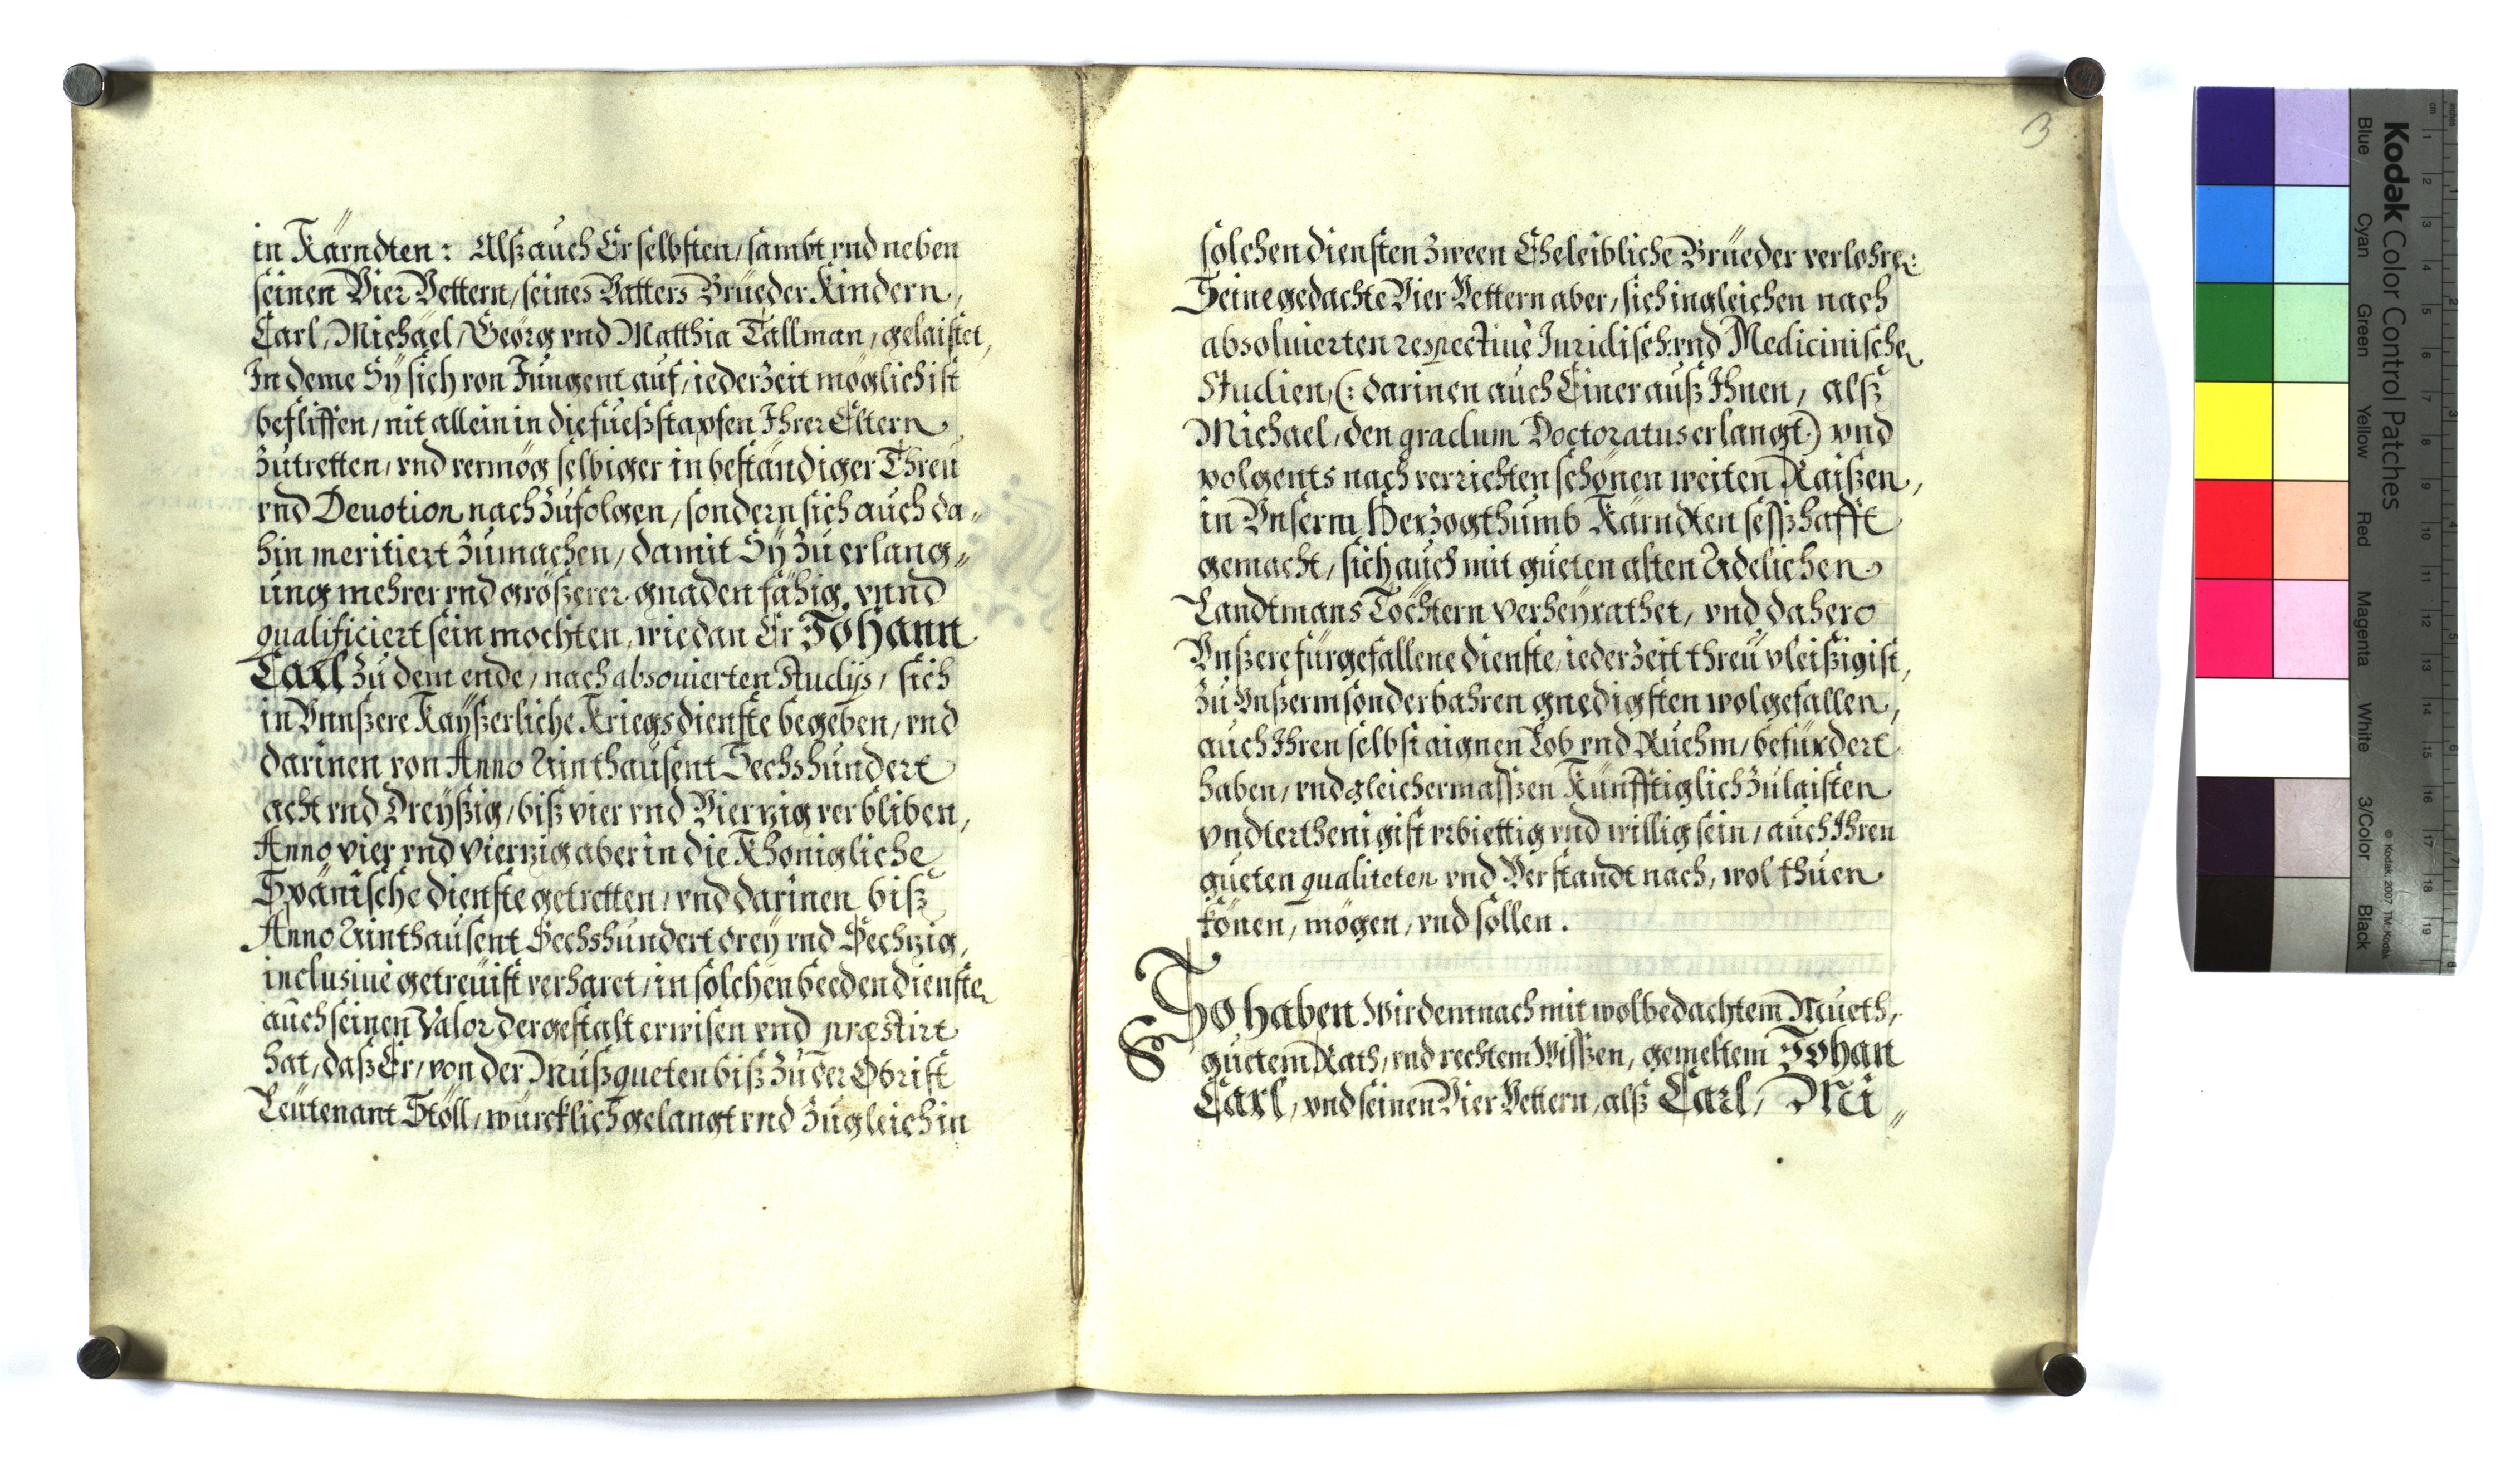 in Kärndten: Alß auch Er selbsten, sambt vnd neben
seinen Vier Vettern, seines Vatters Brüeder Kindern,
Carl, Michäel, Geörg vnd Matthia Tallman, gelaistet,
In deme Sÿ sich von Jungent auf, iederzeit möglichist
befliffen, nit allein in die fueßstapfen Ihrer Eltern
zutretten, vnd vermög selbiger in beständiger Threu
vnd Deuotion nachzufolgen, sondern sich auch da„
hin meritiert zumachen, damit Sÿ zu erlang„
ung mehrer vnd größerer gnaden fähig, vnnd
qualificiert sein mochten, wie dan Er Johann
Carl zu dem ende, nach absouierten Studijs, sich
in Vnnßere Kayßerliche Kriegsdienste begeben, vnd
darinen von Anno Ainthausent Sechshundert
acht vnd Dreyßig, biß vier vnd Vierzig verbliben,
Anno vier vnd vierzig aber in die Khönigliche
Spänische dienste getretten, vnd darinen biß
Anno Ainthausent Sechshundert drey vnd Sechzig,
inclusiue getreuist verharet, in solchen beeden dienste
auch seinen Valor dergestalt erwisen vnd præstirt
hat, daß Er, von der Mußqueten biß zu der Obrist
Leütenant Stöll, würcklich gelangt vnd zugleich in
3
solchen diensten zween Eheleibliche Brüeder verlohre:
Seine gedachte Vier Vettern aber, sich ingleichen nach
absoluierten respectiuè Juridisch: vnd Medicinische
Studien, (: darinen auch Einer auß Ihnen, alß
Michael, den gradum Doctoratus erlangt:) vnd
volgents nach verrichten schönen weiten Raißen,
in Vnserm Herzogthumb Kärndten seßhafft
gemacht, sich auch mit gueten alten Adelichen
Landtmans Töchtern verheyrathet, vnd dahero
Vnßere fürgefallene dienste, iederzeit threu vleißigist,
zu Vnßerm sonderbahren gnedigsten wolgefallen,
auch Ihren selbst aignen Lob vnd Ruehm, befürdert
haben, vnd gleichermaßen Künfftiglich zulaisten
vndterthenigist erbiettig vnd willig sein, auch Ihren
gueten qualiteten vnd Verstandt nach, wol thuen
können, mögen, vnd sollen.
So haben Wir demnach mit wolbedachtem Mueth,
guetem Rath, vnd rechtem Wißen, gemeltem Johan
Carl, vnd seinen Vier Vettern, alß Carl, Mi„
Kodak Color Control Patches
Blue Cyan Green Yellow Red Magenta White 3/Color Black
© Kodak, 2007 TM: Kodak